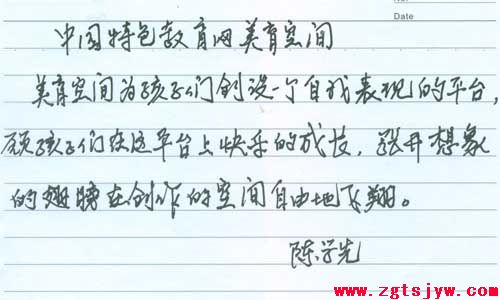 Date
中国特色教育网美育空间
美育空间为孩子们创设一个自我表现的平台，
愿孩子们在这平台上快乐的成长，张开想象
的翅膀在创作的空间自由地飞翔。
陈学先
www.zgtsjyw.com